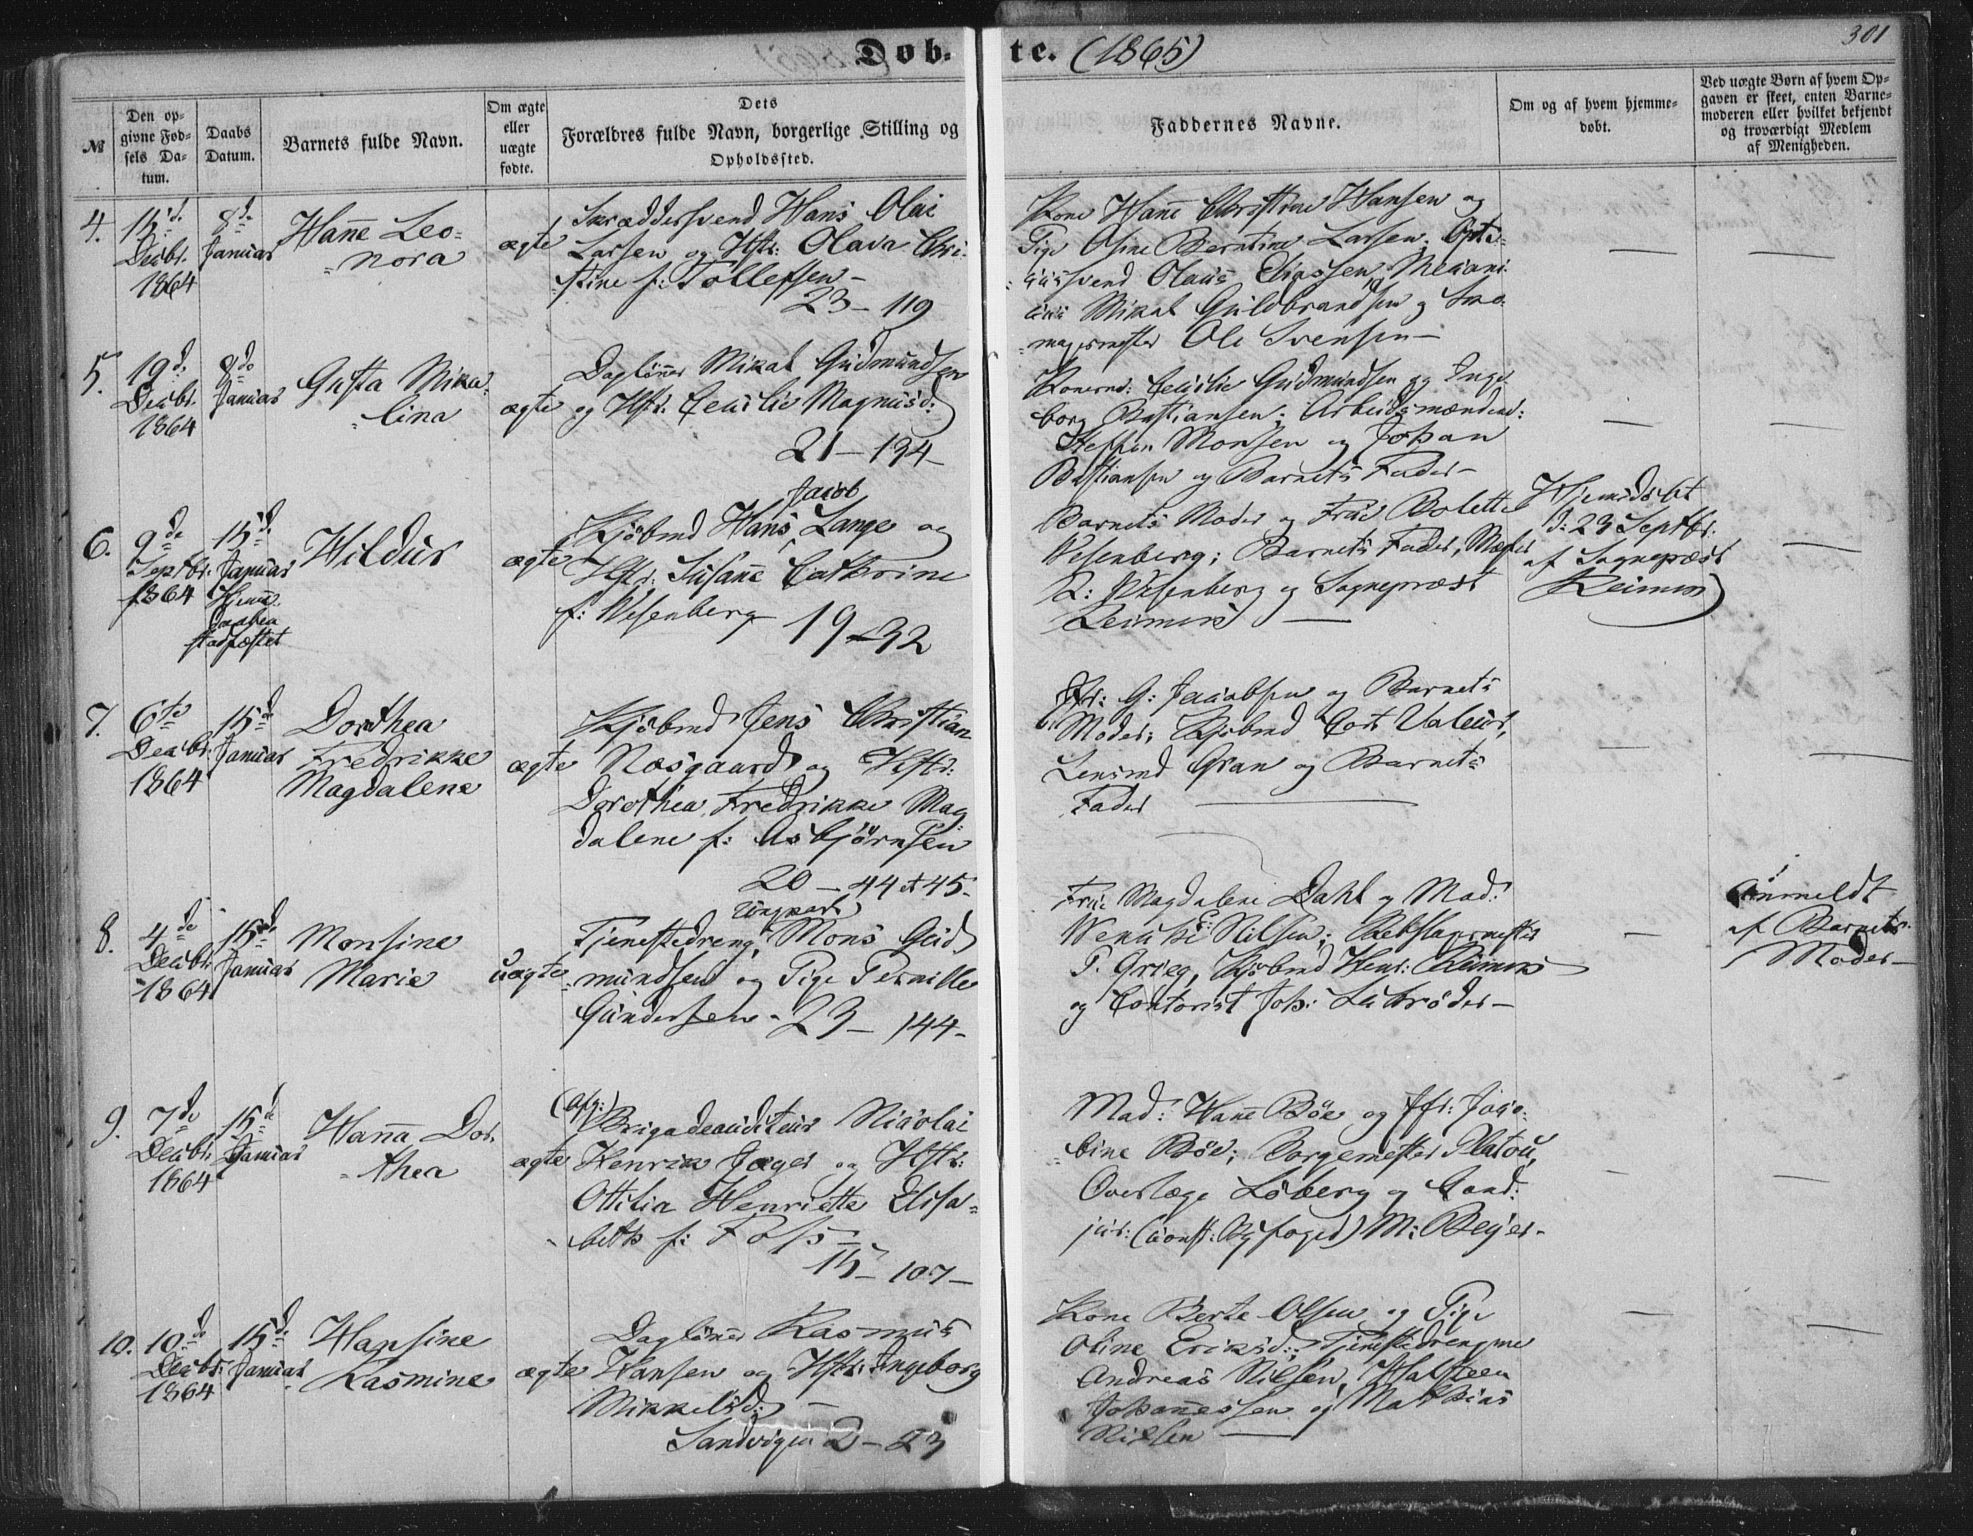 301
Døbte. (1865)
№
Den opgivne Fødsels Datum.
Daabs Datum.
Barnets fulde Navn.
Om ægte eller uægte fødte.
Dets Forældres fulde Navn, borgerlige Stilling og Opholdssted.
Faddernes Navne.
Om og af hvem hjemmedøbt.
Ved uægte Børn af hvem Opgaven er skeet, enten Barnemoderen eller hvilket bekjendt og troværdigt Medlem af Menigheden.
4.
15de
Decbr.
1864
8de
Januar
Hanne Leo-
nora
ægte
Skræddersvend Hans Olai
Larsen og Hstr: Olava Chri-
stine f: Tollefsen -
23 - 119
Kone Hanne Christine Hansen og
Pige Osine Berntine Larsen; Opti-
cussvend Olaus Eliassen, Mecani-
cus Mikal Guldbrandsen og Sko-
magermester Ole Svensen -
5.
19de
Decbr.
1864
8de
Januar
Gusta Mika-
lina
ægte
Daglønner Mikal Gudmundsen
og Hstr. Cecilie Magnusd:
21 - 194 -
Konerne: Cecilie Gudmundsen og Inge-
borg Bastiansen; Arbeidsmændene:
Steffen Monsen og Johan
Bastiansen og Barnets Fader -
6.
9de
Septbr.
1864
15de
Januar
Hjemme
Daaben
stadfæstet
Hildur
ægte
Kjøbmd Hans Jacob Lange og
Hstr: Susanne Cathrine
f: Wesenberg 19 - 32
Barnets Moder og Frue Bolette
Wesenberg; Barnets Fader, Mægler
R: Wesenberg og Sognepræst
Reimers -
Hjemmedøbt
d: 23 Septbr.
af Sognepræst
Reimers
7.
6te
Decbr.
1864
15de
Januar
Dorothea
Fredrikke
Magdalene
ægte
Kjøbmd Jens Christian
Næsgaard og Hstr:
Dorothea Fredrikke Mag-
dalene f: Asbjørnsen
20 - 44 & 45 -
Jfr: G: Jacobsen og Barnets
Moder; Kjøbmd Cort Valeur,
Lensmd Gran og Barnets
Fader
8.
4de
Decbr.
1864
15de
Januar
Monsine
Marie
uægte
Ungkarl
Tjenestedreng Mons Gud-
mundsen og Pige Pernille
Gundersen - 23 - 144 -
Frue Magdalene Dahl og Mad:
Nilsen; Rebslagermester
P. Grieg, Kjøbmd Henr: Reimers
og Contorist Joh:
Anmeldt
af Barnets
Moder -
9.
7de
Decbr.
1864
15de
Januar
Hanna Dor-
thea
ægte
(Afg:)
Brigadeauditeur Nicolai
Henrik Jæger og Hstr:
Ottilia Henriette Elisa-
beth f: Foss
15 - 107 -
Mad: Hanne Bøe og Jfr: Jaco-
bine Bøe; Borgemester Platou,
Overlæge Løberg og Cand:
jur: (const: Byfoged) M: Beyer -
10.
10de
Decbr.
1864
15de
Januar
Hansine
Rasmine
ægte
Daglønner Rasmus
Hansen og Hstr: Ingeborg
Mikkelsd: -
Sandvigen 2 - 23
Kone Berte Olsen og Pige
Oline Eriksd:; Tjenestedrengene
Andreas Nilsen, Halsteen
Johannessen og Mathias
Nilsen